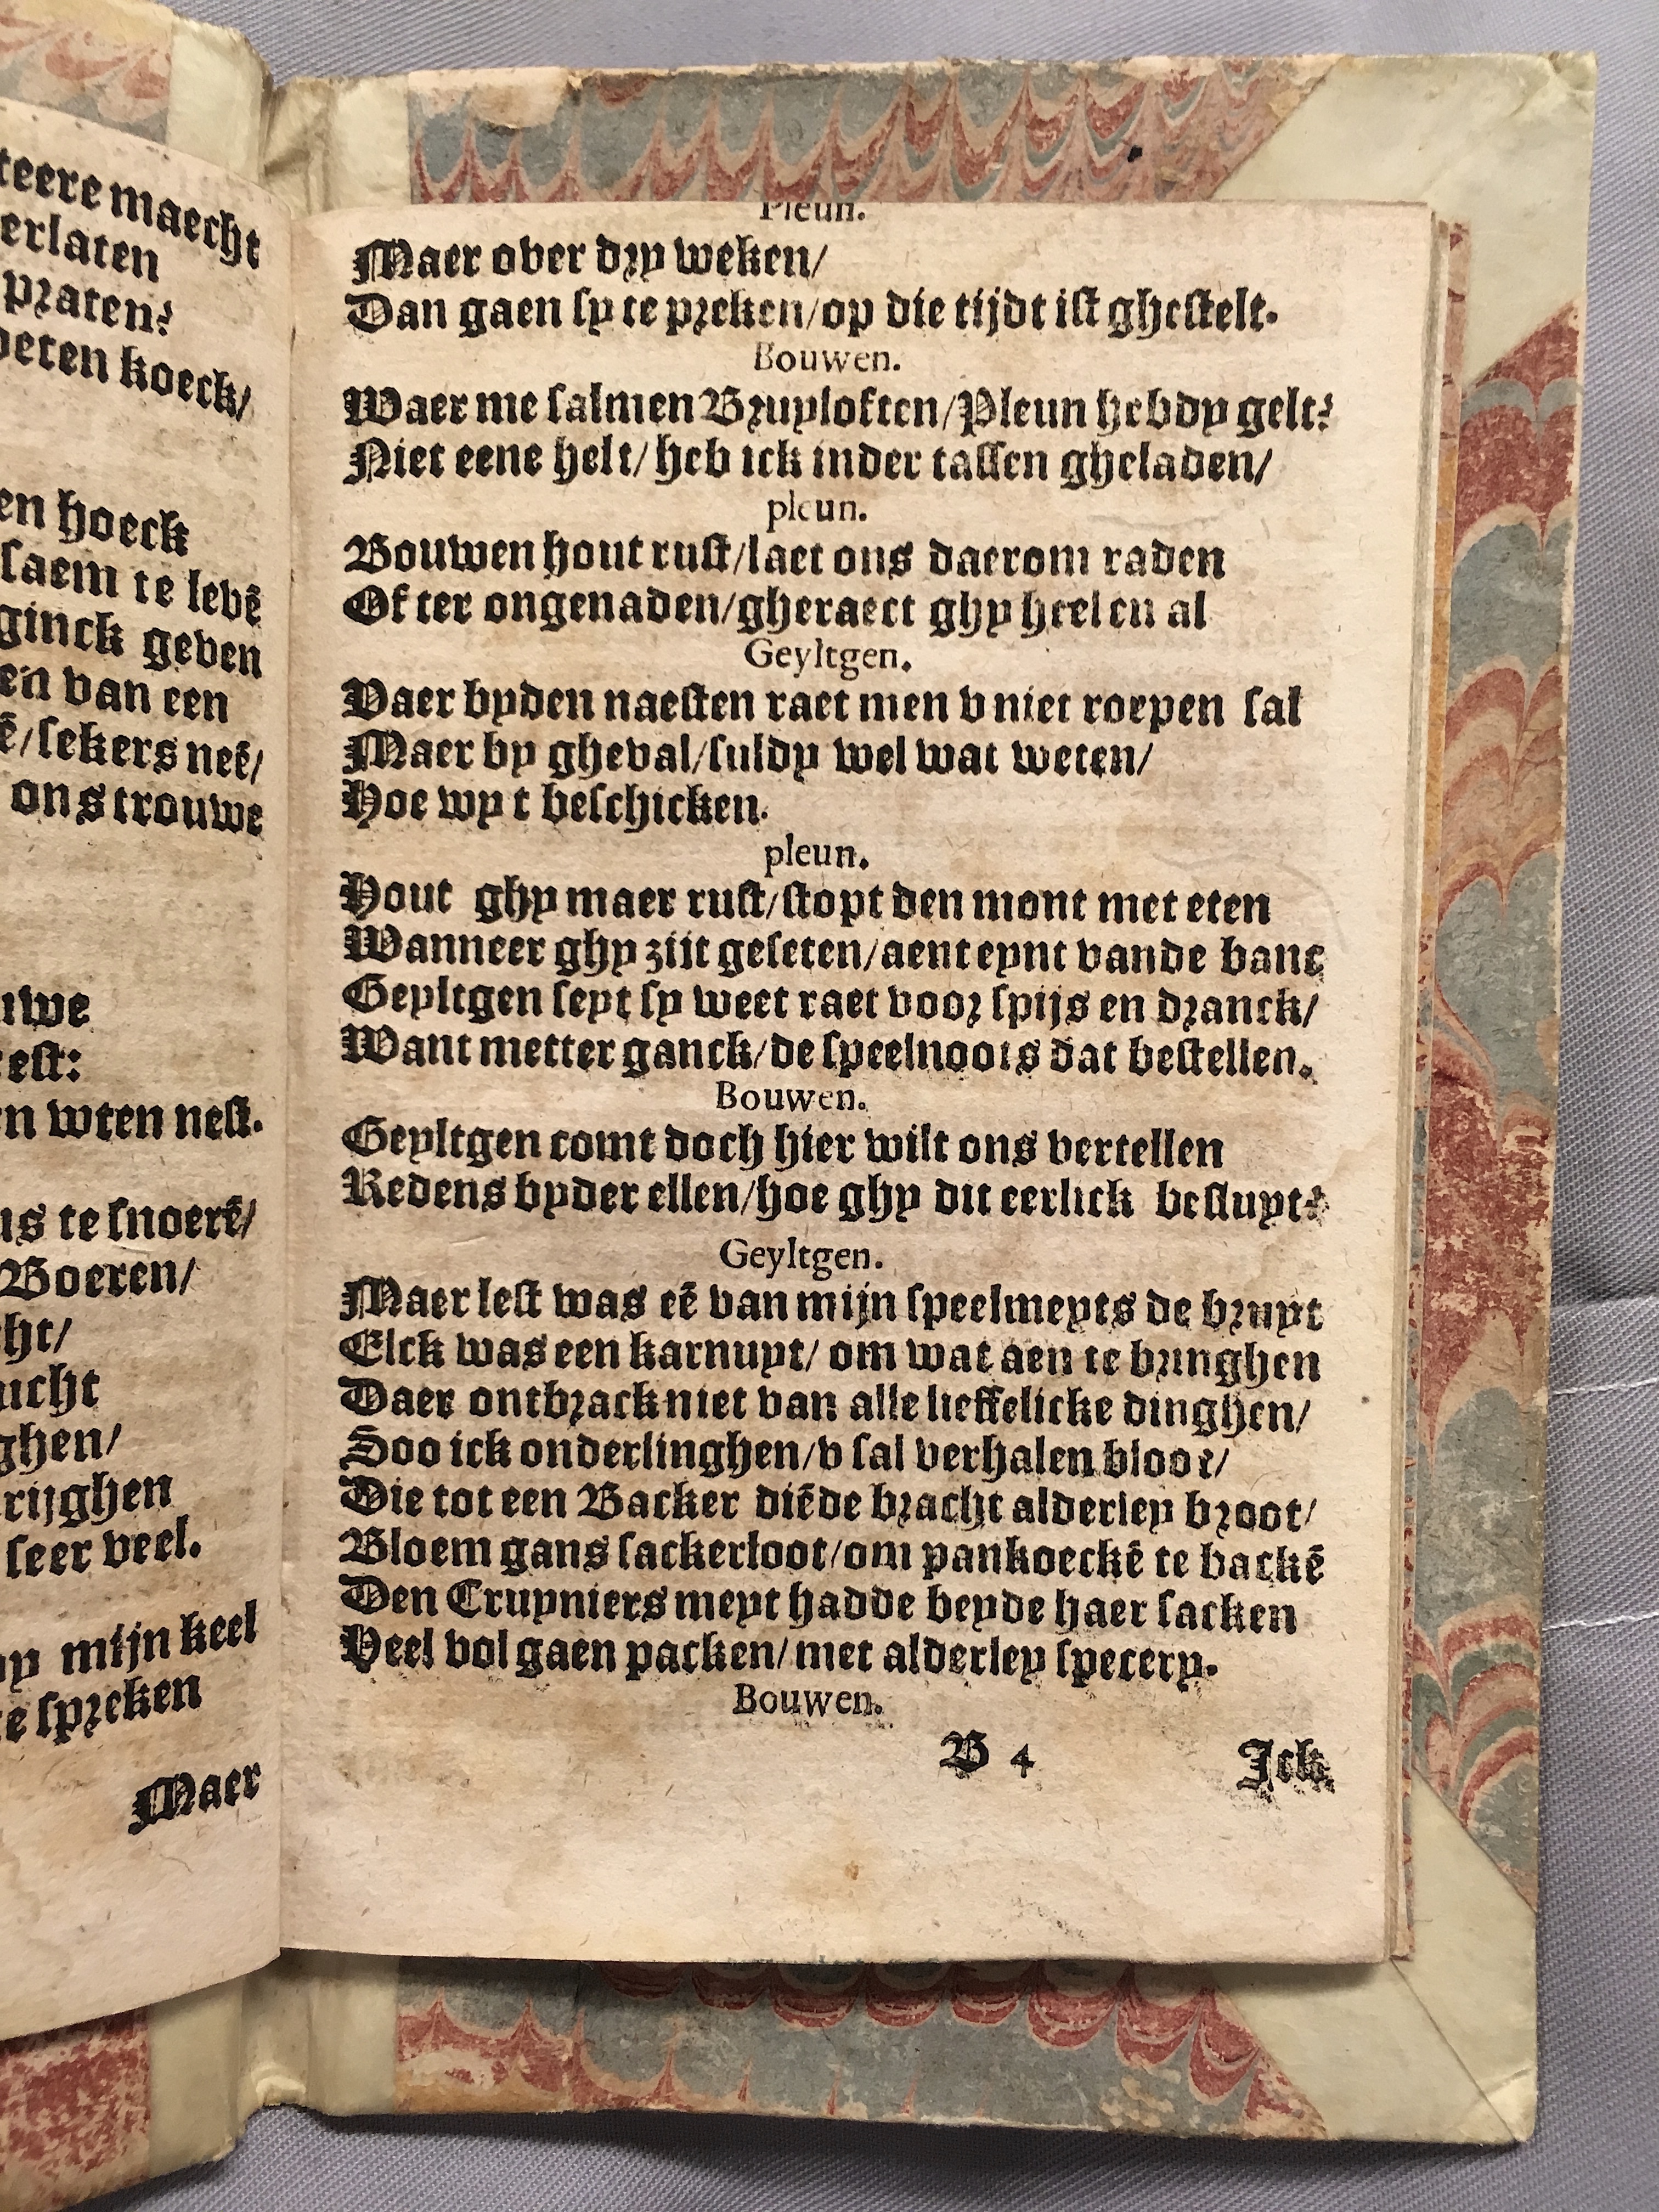 teere maecht
erlaten
praten?
oeten koeck/
en hoeck
saem te levē
ginck geven
en van een
ē/sekers neē/
ons trouwe
uwe
rest:
n wten nest.
us te snoerē/
Boeren/
cht/
ucht
ghen/
rijghen
seer veel.
py mijn keel
te spreken
Maer
Pleun.
Maer over dry weken/
Dan gaen sy te preken/op die tijdt ist ghestelt.
Bouwen.
Waer me salmen Bruyloften/Pleun hebdy gelt?
Niet eene helt/ heb ick inder tassen gheladen/
pleun.
Bouwen hout rust/laet ons daerom raden
Of ter ongenaden/gheraect ghy heel en al
Geyltgen.
Vaer byden naesten raet men v niet roepen sal
Maer by gheval/suldy wel wat weten/
Hoe wy t beschicken.
pleun.
Hout ghy maer rust/stopt den mont met eten
Wanneer ghy zijt geseten/aent eynt vande banc
Geyltgen seyt sy weet raet voor spijs en dranck/
Want metter ganck/de speelnoots dat bestellen.
Bouwen.
Geyltgen comt doch hier wilt ons vertellen
Redens byder ellen/hoe ghy dit eerlick besluyt?
Geyltgen.
Maer lest was eē van mijn speelmeyts de bruyt
Elck was een karnuyt/ om wat aen te bringhen
Daer ontbrack niet van alle lieffelicke dinghen/
Soo ick onderlinghen/v sal verhalen bloot/
Die tot een Backer diēde bracht alderley broot/
Bloem gans sackerloot/om pankoeckē te backē
Den Cruyniers meyt hadde beyde haer sacken
Veel vol gaen packen/met alderley specery.
Bouwen.
B 4
Ick